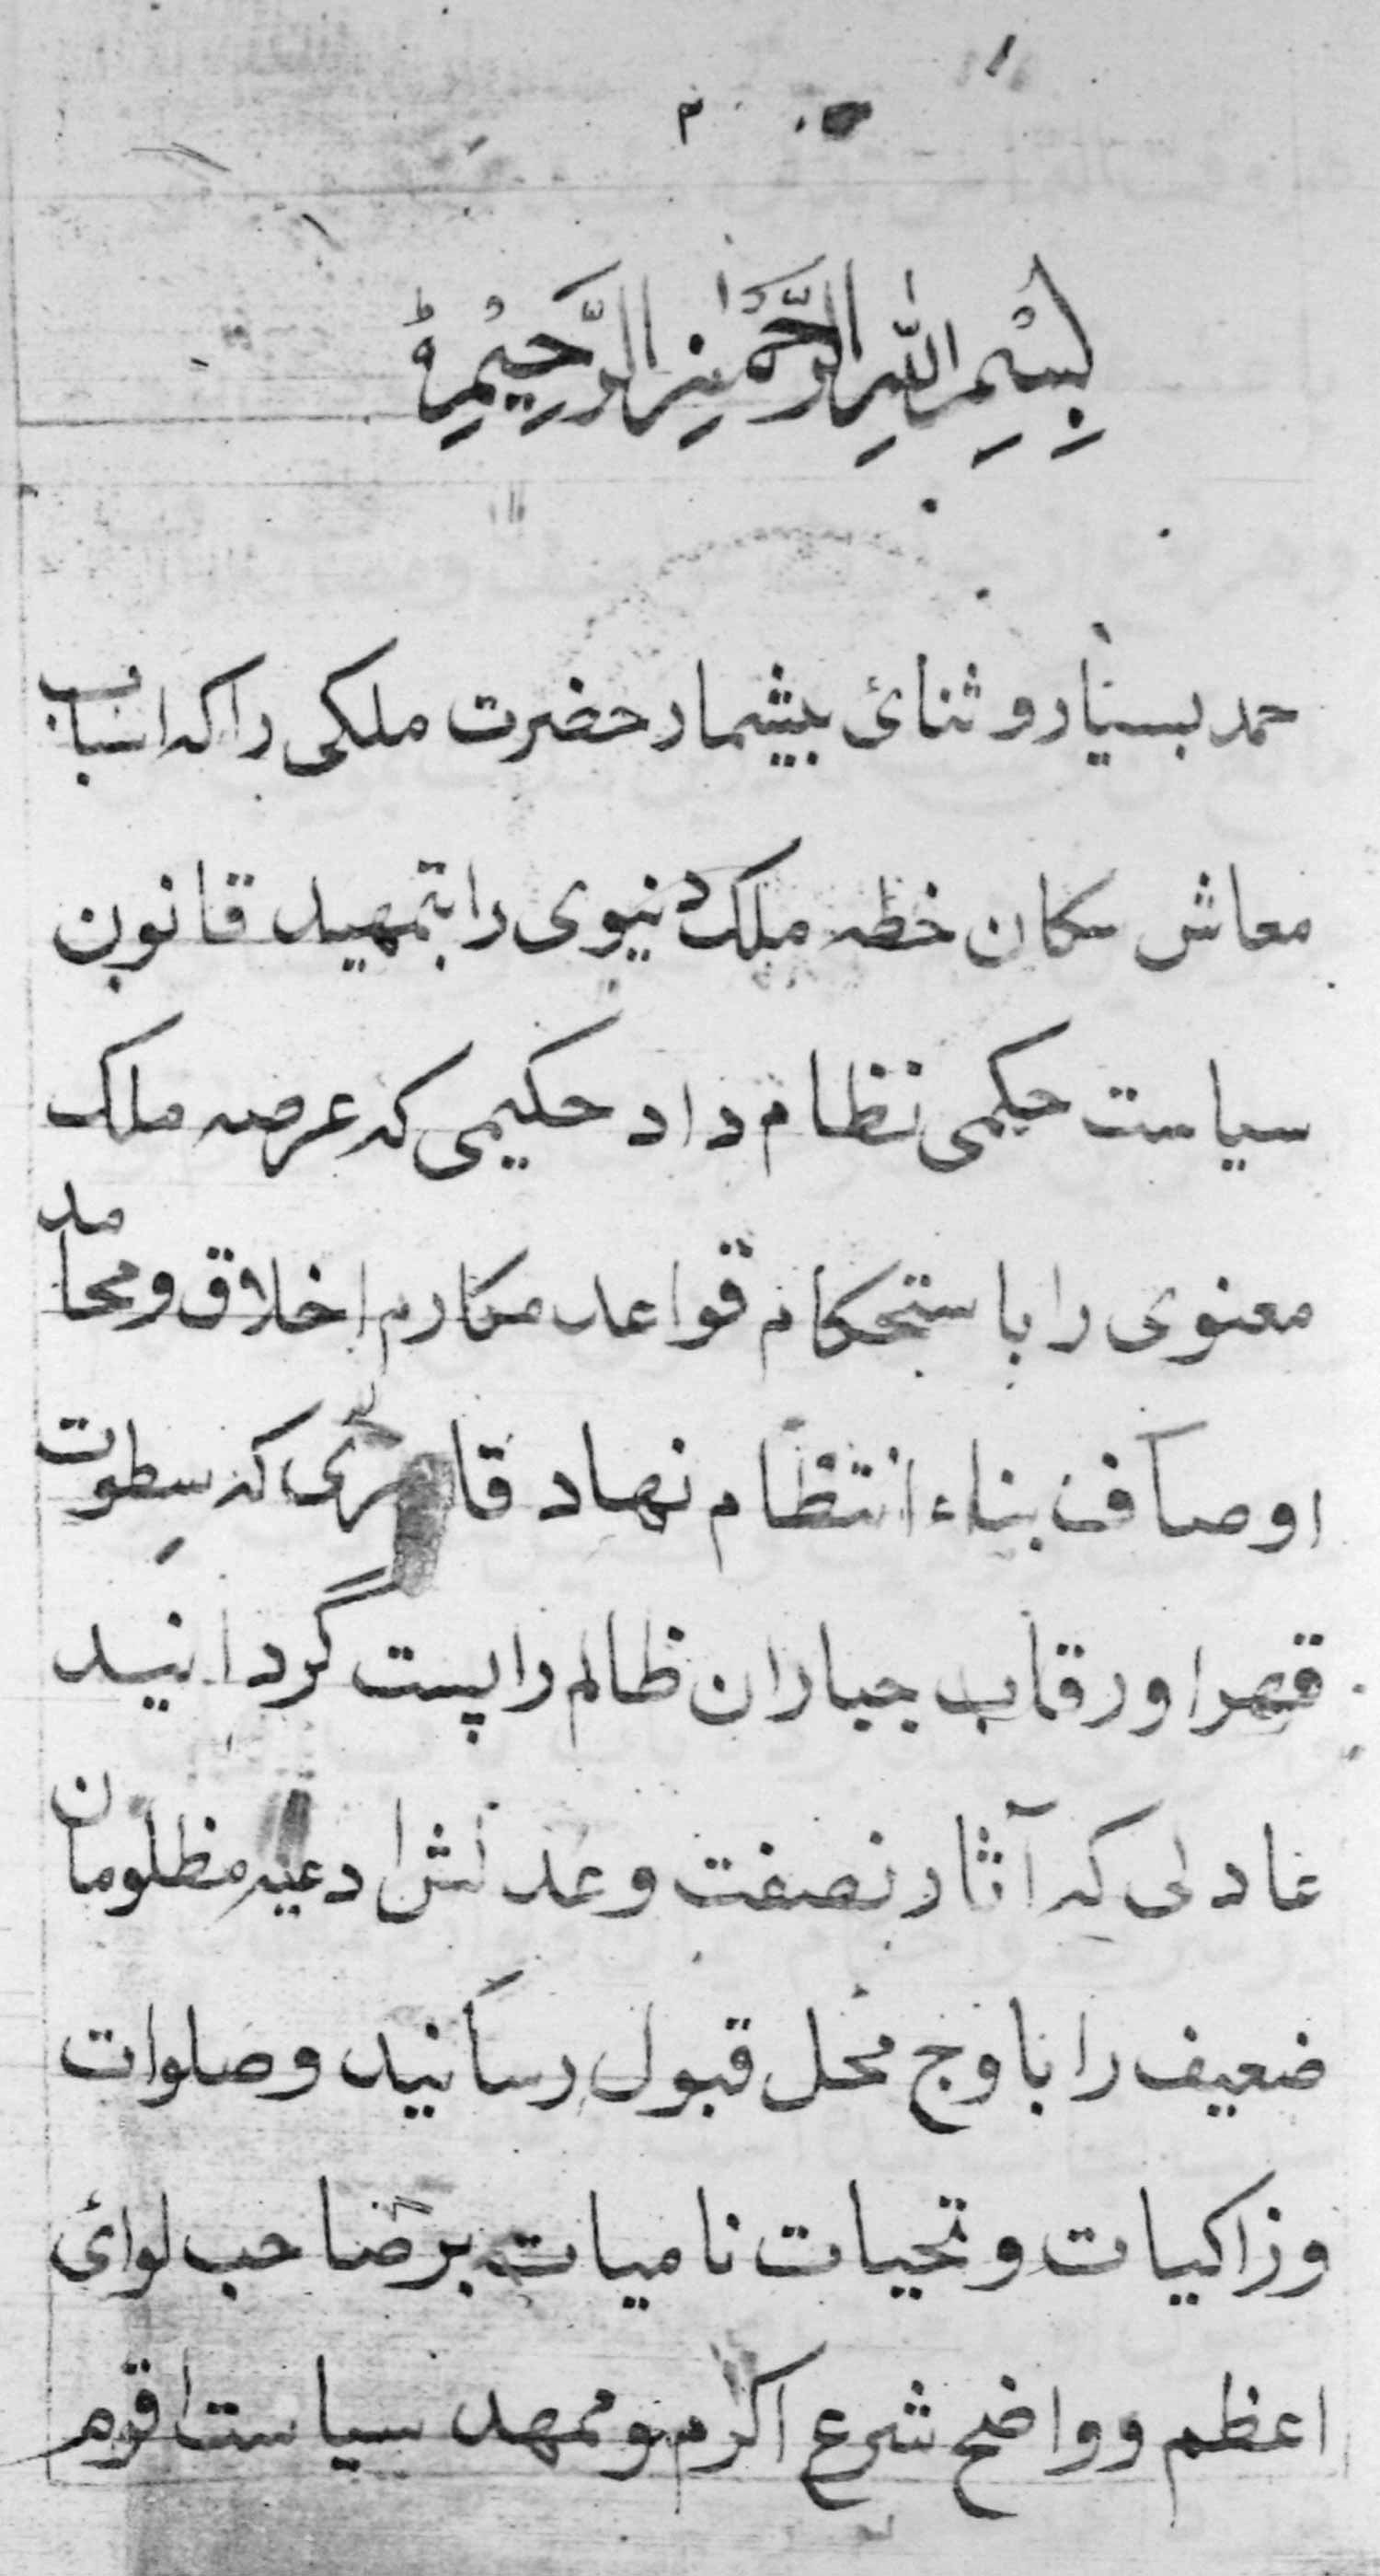 ۲
بِسْمِ اللّٰهِ الرَّحْمٰنِ الرَّحِيْمِ
حمد بسیار و ثنائ بیشمار حضرت ملکی را که اسباب
معاش سکان خطه ملک دنیوی را بتمهید قانون
سیاست حکمی نظام داد حکیمی که عرصه ملک
معنوی را باستحکام قواعد مکارم اخلاق و محامد
اوصاف بناء انتظام نهاد قاهری که سطوت
قهر او رقاب جباران ظالم را پست گردانید
عادلی که آثار نصفت و عدلش ادعیه مظلومان
ضعیف را باوج محل قبول رسانید و صلوات
و زاکیات و تحیات نامیات بر صاحب لوائ
اعظم و واضح شرع اکرم و ممهد سیاست اقوم